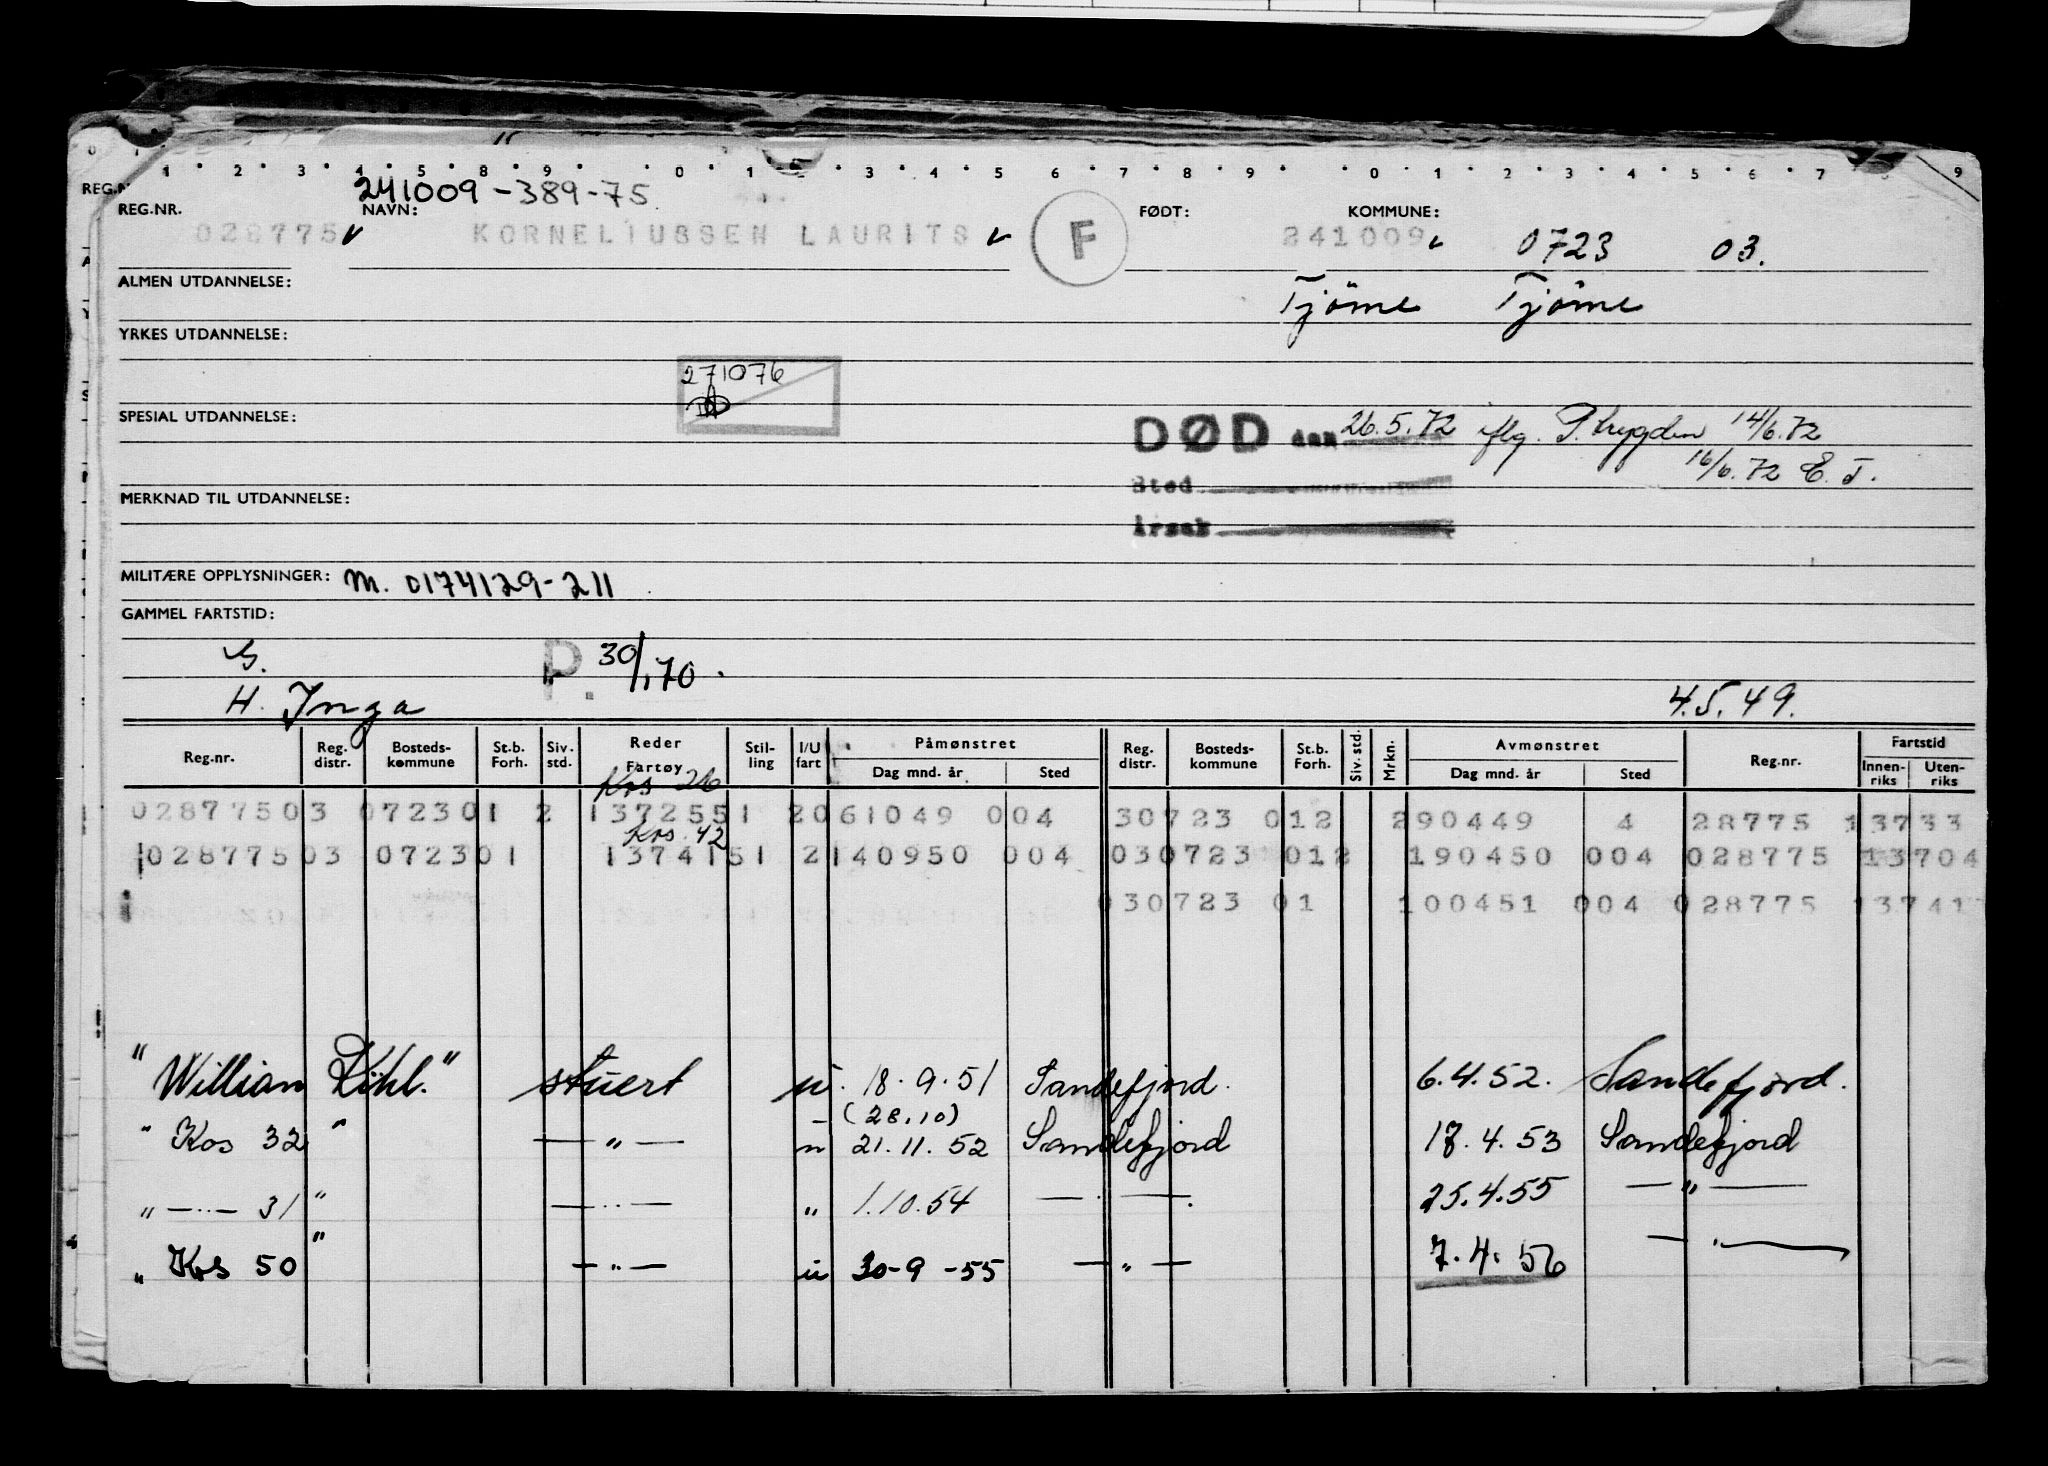 1 2 3 4 5 8 9 0 1 3 4 5 6 7 8 9 0 1 2 3 4 5 6 7 8 9
241009-389-75
REG.NR. NAVN: FØDT: KOMMUNE:
028775 KORNELIUSSEN LAURITS F 241009 0723 03.
ALMEN UTDANNELSE: Tjöme Tjöme
YRKES UTDANNELSE:
271076
SPESIAL UTDANNELSE:
DØD den 26.5.72 iflg. P. trygden 14/6.72
Sted 16/6.72 E. T.
MERKNAD TIL UTDANNELSE:
Årsak
MILITÆRE OPPLYSNINGER: M. 0174129-211
GAMMEL FARTSTID:
G. P. 30/1.70.
H. Inga 4.5.49.
Reg.nr. Reg. distr. Bosteds- kommune St.b. Forh. Siv. std. Reder Fartøy Stil- ling I/U fart Påmønstret Dag mnd. år Sted Reg. distr. Bosteds- kommune St.b. Forh. Siv. std. Mrkn. Avmønstret Dag mnd. år Sted Reg.nr. Fartstid Innen- riks Uten- riks
Kos 26
02877503 072301 2 1372551 2061049 004 30723 012 290449 4 28775 13733
Kos 42
02877503 072301 1374151 2140950 004 030723 012 190450 004 028775 13704
030723 01 100451 004 028775 13741
"William Kihl." stuert u. 18.9.51 Sandefjord. 6.4.52. Sandefjord.
(28.10)
" Kos 32 " — " — u 21.11.52 Sandefjord 18.4.53 Sandefjord
" — " — 31 " — " — " 1.10.54 — " — 25.4.55 — " —
" Kos 50 " — " — u 30-9-55 — " — 7.4.56 — " —